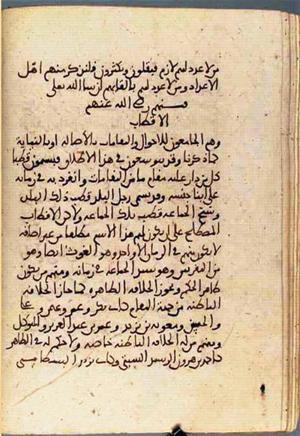 من لا عدد لهم لازم فيقلون ويكثرون فلنذكر منهم اهل
الاعداد ومن لا عدد لهم بالقابهم ان شا الله تعلى
فمنهم رضي الله عنهم
الاقطاب
وهم الجامعون للاحوال والمقامات بالاصالة او بالنيابة
كما ذكرنا وقد يتوسعون في هذا الاطلاق فيسمون قطبا
كل من دار عليه مقام ما من المقامات وانفرد به في زمانه
على ابنا جنسه وقد يسمى رجل البلد قطب ذلك البلد
وشيخ الجماعة قطب تلك الجماعة ولاكن الاقطاب
المصطلح على ان يكون لهم هذا الاسم مطلقا من غير اضافة
لا يكون منهم في الزمان الا واحد وهو الغوث ايضا وهو
من المقربين وهو سيد الجماعة في زمانه ومنهم من يكون
ظاهر الحكم ويحوز الخلافة الظاهرة كما حاز الخلافة
الباطنة من جهة المقام كابي بكر وعمر وعثمن وعلي
والحسن ومعوية بن يزيد وعمر بن عبد العزيز والمتوكل
ومنهم من له الخلافة الباطنة خاصة ولا حكم له في الظاهر
كاحمد بن هرون الرشيد السبتي وكابي يزيد البسطامي